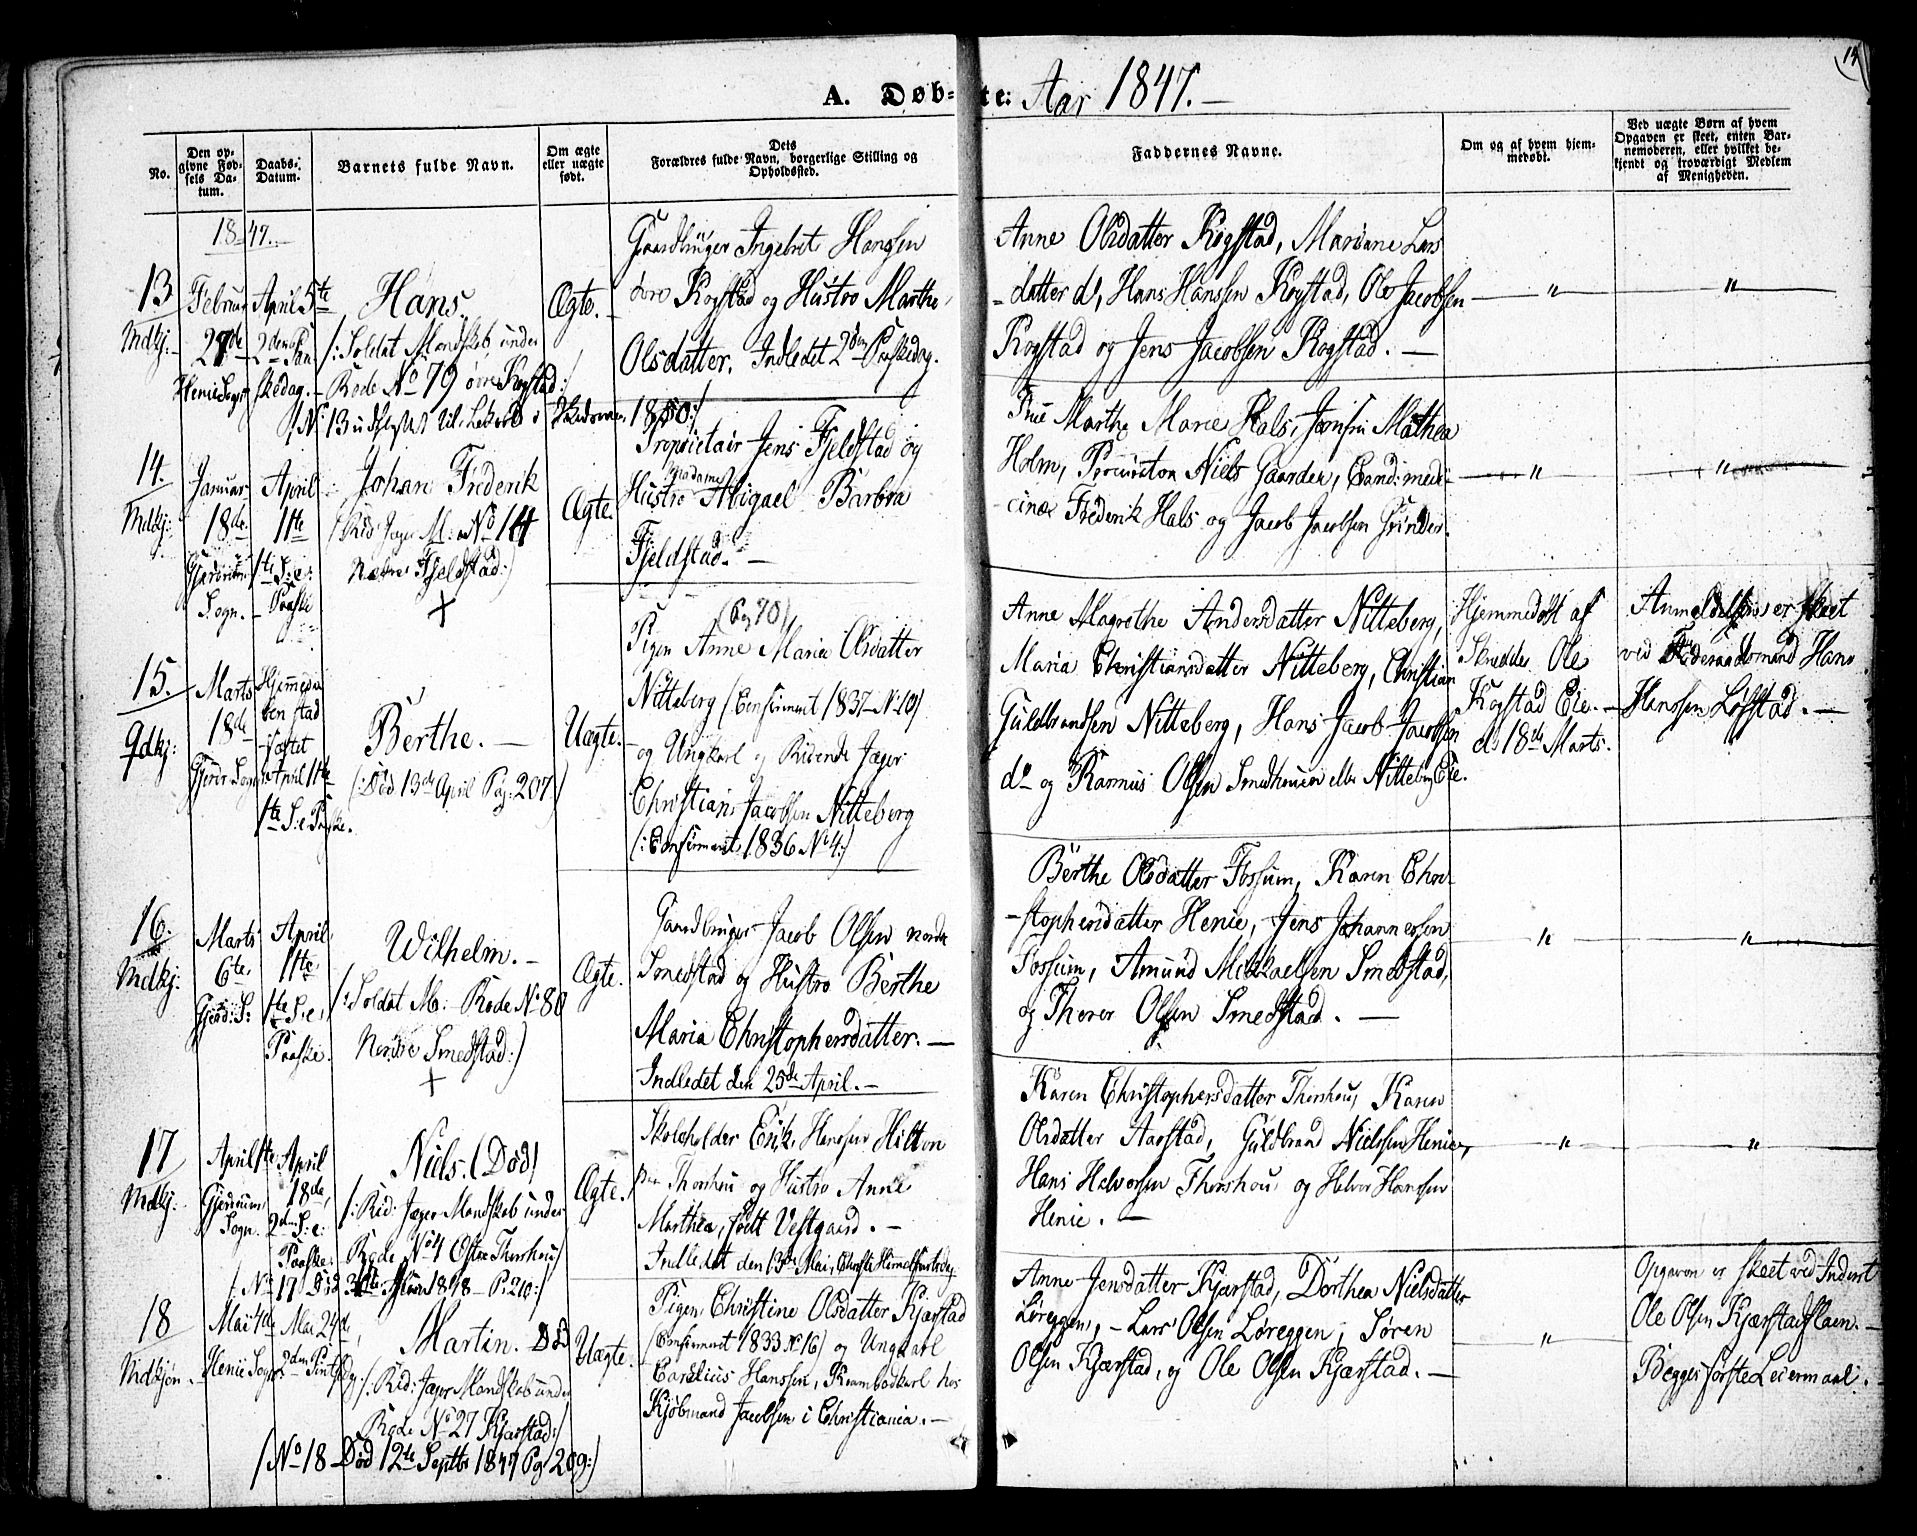 14
A. Døb-te: Aar 1847.
No.
Den op-
givne Fød-
sels Da-
tum.
Daabs-
Datum.
Barnets fulde Navn.
Om ægte
eller uægte
født.
Dets
Forældres fulde Navn, borgerlige Stilling og
Opholdssted.
Faddernes Navne.
Om og af hvem hjem-
medøbt.
Ved uægte Børn af hvem
Opgaven er skeet, enten Bar-
nemoderen, eller hvilket be-
kjendt og troværdigt Medlem
af Menigheden.
1847.
13
Mdkj:
Februar
27de
Henie Sogn
April 5te
2den Paa-
skedag.
Hans.
/: Soldat Mandskab under
Rode No 79 øvre Kogstad:/
Ægte.
Gaardbruger Ingebret Hansen
øvre Kogstad og Hustro Marthe
Olsdatter. Indledet 2den Paaskedag.
Anne Olsdatter Kogstad, Mariane Lars
datter do, Hans Hanssen Kogstad, Ole Jacobsen
Kogstad og Jens Jacobsen Kogstad.
"
"
/No 13 udflyttet til 1850:/
14.
Mdkj:
Januar
18de
Gjerdrum
Sogn.
April
11te
1te S: e:
Paaske
Johan Frederik
/Rid Jæger M: No 14
Nedre Fjeldstad:)
+
Ægte.
Proprietair Jens Fjeldstad og
Hustro Madame Abigael Barbra
Fjeldstad.
Frue Marthe Marie Hals, Jomfru Mathea
Holm, Procurator Niels Gaarder, Cand: medi-
cinæ Frederik Hals og Jacob Jacobsen Grinder.
"
"
15.
Qdkj:
Marts
18de
Gjerdr. Sogn
Hjemmedø-
ben stad
fæstet
April 11te
1te S: e Paaske.
Berthe.
(: Død 13de April Pag: 207/
Uægte.
(Pag 70)
Pigen Anne Maria Olsdatter
Nitteberg (Confirmeret 1837 No 10)
og Ungkarl og Ridende Jæger
Christian Jacobsen Nitteberg
(: Confirmeret 1836 No 4:)
Anne Magrethe Andersdatter Nitteberg,
Maria Christiansdatter Nitteberg, Christian
Guldbrandsen Nitteberg, Hans Jacob Jacobsen
do og Rasmus Olsen Smedhuusen eller Nitteberg Eie.
Hjemmedøbt af
Skredder Ole
Kogstad Eie.
d: 18de Marts.
Anmeldelsen er skeet
ved Hans
Hanssen Løfstad.
16.
Mdkj:
Marts
6te
Gjerd: S:
April
11te
1te S: e:
Paaske.
Wilhelm.
/: Soldat M: Rode No 80
Nordre Smedstad:)
+
Ægte.
Gaardbruger Jacob Olsen nordre
Smedstad og Hustro Berthe
Maria Christophersdatter.
Indledet den 25de April.
Berthe Olsdatter Fossum, Karen Chri-
stophersdatter Henie, Jens Johannessen
Fossum, Amund Mikkaelsen Smedstad,
og Thorer Olsen Smedstad.
"
"
17
Mdkj:
April 1te
Gjerdrum
Sogn.
April
18de,
2den S: e:
Paaske.
Niels. (Død)
/: Rid: Jæger Mandskab under
Rode No 4 Østre Thorshou/
Ægte.
Skoleholder Erik Hanssen Hilton
paa Thorshou og Hustro Anne
Marthea, født Vestgaard.
Indledet den 13de Mai, Christi Himmelfartsdag
Karen Christophersdatter Thorshou, Karen
Olsdatter Aarstad, Guldbrand Nielssen Henie,
Hans Halvorsen Thorshou og Halvor Hanssen
Henie.
"
"
/No 17 Død 1848 P: 210:/
18
Mdkjøn.
Mai 4de
Henie Sogn
Mai 24de
2den Pintsedag
Martin. Død
/: Rid: Jæger Mandskab under
Rode No 27 Kjærstad:/
Uægte.
Pigen Christine Olsdatter Kjærstad
(Confirmeret 1833 No 16) og Ungkarl
Carelius Hanssen, Krambodkarl hos
Kjøbmand Jacobsen i Christiania.
Anne Jensdatter Kjærstad, Dorthea Nielsdatter
Løreggen, - Lars Olsen Løreggen, Søren
Olsen Kjærstad, og Ole Olsen Kjærstad.
"
Opgaven er skeet ved Inderst
Ole Olsen Kjærstadflaen.
Begges første Leiermaal.
/No 18 Død 12te Septbr 1847 Pag 209:)